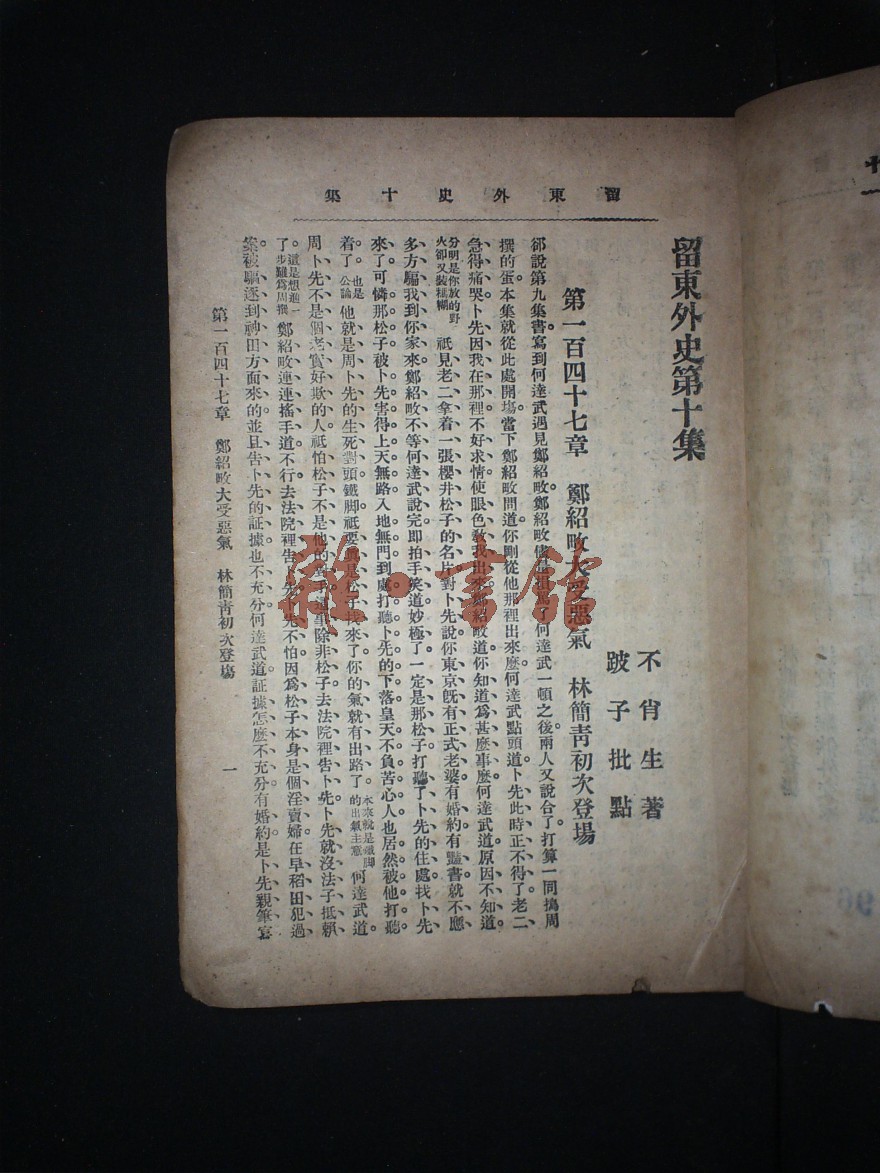 留東外史十集
留東外史第十集
不肖生著
跛子批點
第一百四十七章 鄭紹畋大受惡氣 林簡青初次登場
郤說第九集書寫到何達武遇見鄭紹畋。鄭紹畋儘量了何達武一頓之後。兩人又說合了。打算一同搗周
撰的蛋。本集就從此處開塲。當下鄭紹畋問道。你剛從他那裡出來麼。何達武點頭道。卜先此時正不得了。老二
急得痛哭。卜先因我在那裡。不好求情。使眼色教我出來。鄭紹畋道。你知道爲甚麼事麼。何達武道。原因不知道。
分明是你放的野火卻又裝糊 祇見老二拿着一張櫻井松子的名片。對卜先說。你東京旣有正式老婆。有婚約。有豔書。就不應
多方騙我到你家來。鄭紹畋不等何達武說完。即拍手笑道。妙極了。一定是那松子打聽了卜先的住處。找卜先
來了。可憐那松子。被卜先害得上天無路。入地無門。到處打聽卜先的下落。皇天不負苦心人。也居然被他打聽
着了。也是公論 他就是周卜先的生死對頭。鐵脚祇要是松子找來了。你的氣就有出路了。本來就是鐵脚的出氣主意 何達武道。
周卜先不是個老實好欺的人。祇怕松子不是他的對手。除非松子去法院裡告卜先。卜先就沒法子抵賴
了。這是想進一步難爲周撰 鄭紹畋連連搖手道。不行。去法院裡告卜先。卜先不怕。因爲松子本身是個淫賣婦。在早稻田犯過
案。被驅逐到神田方面來的。並且告卜先的証據也不充分。何達武道。証據怎麼不充分。有婚約。是卜先親筆寫
第一百四十七章 鄭紹畋大受惡氣 林簡青初次登塲
一
雜·書館
96